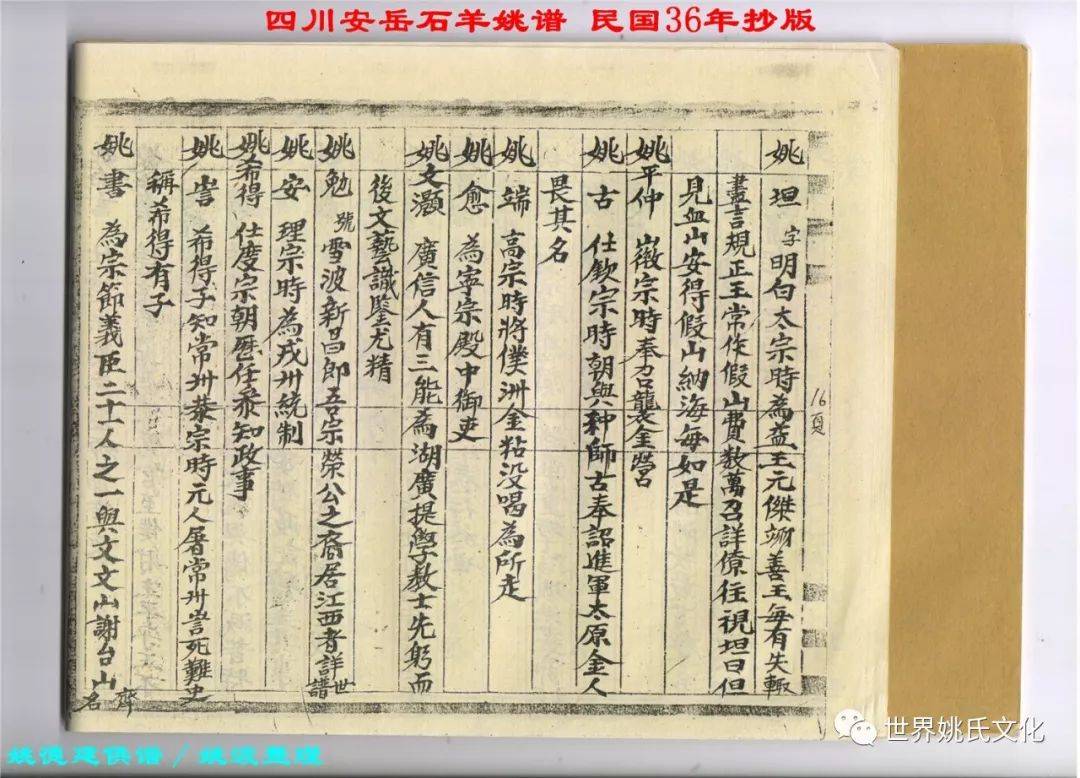 四川安岳石羊姚谱 民国36年抄版
姚坦 字明白太宗時為益王元傑翊善王每有失輒
盡言規正王常作假山費数萬召詳僚往視坦曰但
見血山安得假山納海每如是
姚平仲 徽宗時奉召襲金營
姚古 仕欽宗時朝與种師古奉詔進軍太原金人
畏其名
姚端 高宗時將僕洲金粘没喝為所走
姚愈 為寧宗殿中御吏
姚文灝 廣信人有三能為湖廣提學教士先躬而
後文藝識鑒尤精
姚勉 號雪波新昌郎吾宗榮公之裔居江西者詳世譜
姚安 理宗時為戎州統制
姚希得 仕度宗朝歷任叅知政事
姚訔 希得子知常州恭宗時元人屠常州訔死難史
稱希得有子
姚書 為宗節義臣二十人之一與文文山謝台山齊名
16頁
姚德建供谱/姚
整理
世界姚氏文化